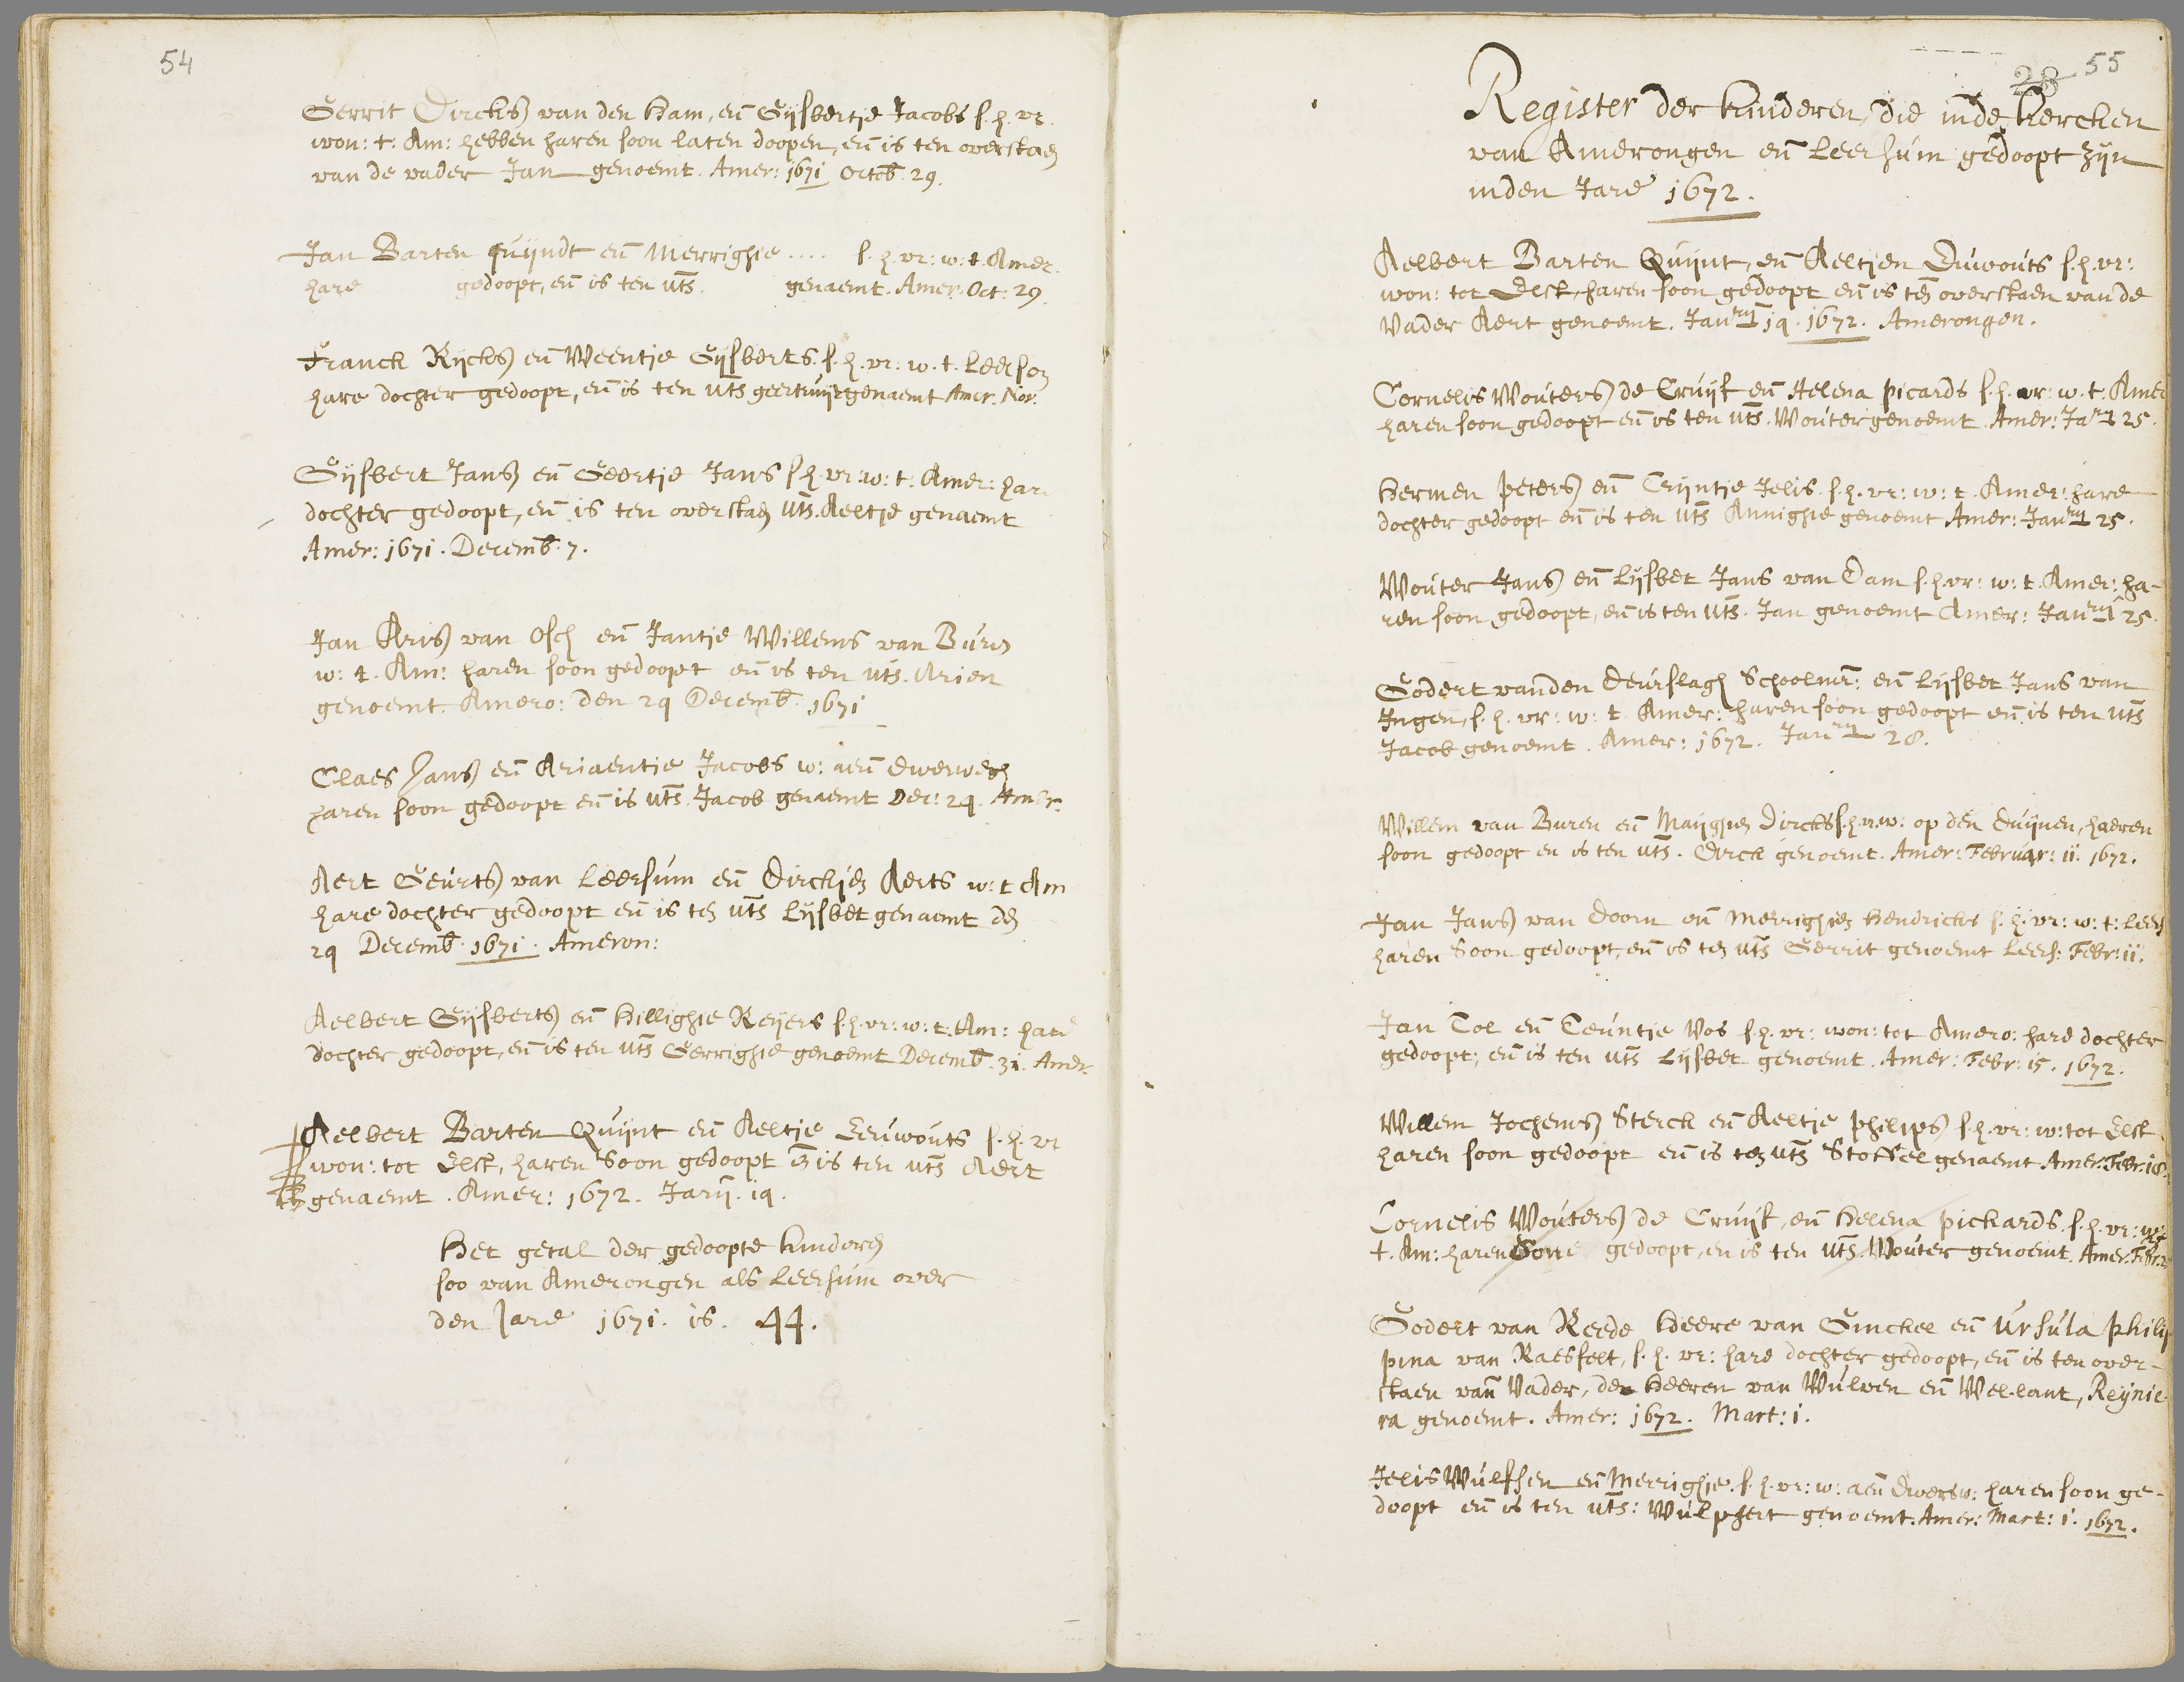 54
Gerrit Dircks van den Ham, en Gijsbertje Jacobs s. h. vr.
won: t. Am: hebben haren soon laten doopen, en is ten overstaen
van de vader Jan genoemt. Amer: 1671 Octob. 29.
Jan Barten quijndt en Merrighie .... s. h. vr: w: t. Amer.
hare gedoopt, en is ten uts. genaemt. Amer. Oct: 29.
Franck Rijcks en Weentje Gijsberts. s. h. vr: w. t. Leersom
hare dochter gedoopt, en is ten uts geertruijt genaemt Amer. Nov.
Gijsbert Jans en Geertje Jans s h. vr: w: t: Amer: hare
dochter gedoopt, en is ten overstaen uts. Aeltje genaemt
Amer: 1671. Decemb. 7.
Jan Aris van Osch en Jantje Willems van Buren
w: t. Am: haren soon gedoopt en is ten uts. Arien
genoemt. Amero: den 24 Decemb. 1671
Claes Jans en Ariaentje Jacobs w: aen Dwerwech
haren soon gedoopt en is uts. Jacob genaemt Dec: 24. Amer.
Aert Geurts van Leersum en Dirckjen Aerts w: t Am
hare dochter gedoopt en is ten uts Lijsbet genaemt den
24 Decemb. 1671. Ameron:
Aelbert Gijsberts en Hillighie Reijers s. h. vr: w: t: Am: hare
dochter gedoopt, en is ten uts Gerrighie genoemt Decemb. 31. Amer.
Aelbert Barten Quijnt en Aeltje Eeuwouts s. h. vr
won: tot Elst, haren Soon gedoopt en is ten uts Aert
genaemt. Amer: 1672. Jarij. 14.
Het getal der gedoopte kinderen
soo van Amerongen als Leersum over
den Jare 1671. is. 44.
28 55
Register der kinderen, die inde kercken
van Amerongen en Leersum gedoopt zijn
inden Jare 1672.
Aelbert Barten Quijnt, en Aeltjen Euwouts s. h. vr:
won: tot Elst, haren soon gedoopt en is ten overstaen van de
Vader Aert genoemt. Janrij 14. 1672. Amerongen.
Cornelis Wouters de Cruijf en Helena picards s. h. vr: w. t. Amer
haren soon gedoopt en is ten uts. Wouter genoemt Amer: Jarij 25.
Hermen peters en Trijntje Jelis. s. h. vr: w: t. Amer: hare
dochter gedoopt en is ten uts Annighie genoemt Amer: Janrij 25.
Wouter Jans en Lijsbet Jans van Dam s. h. vr: w: t. Amer: ha-
ren soon gedoopt, en is ten uts. Jan genoemt Amer: Janrij 25.
Godert vanden Deurslagh Schoolmr: en Lijsbet Jans van
Ingen, s. h. vr: w: t. Amer: haren soon gedoopt en is ten uts
Jacob genoemt. Amer: 1672. Janrij 28.
Willem van Buren en Maijghien Dircks s. h. vr. w: op den Duijnen, haeren
soon gedoopt en is ten uts. Dirck genoemt. Amer: Februar: 11. 1672.
Jan Jans van Doorn en Merrighien Hendricks s. h. vr: w: t: Leers
haren Soon gedoopt, en is ten uts Gerrit genoemt Leers: Febr: 11.
Jan Tol en Teuntje Vos s. h. vr: won: tot Amero: hare dochter
gedoopt; en is ten uts Lijsbet genoemt. Amer: Febr: 15. 1672.
Willem Jochems Sterck en Aeltje philips s. h. vr: w: tot Elst
haren soon gedoopt en is ten uts Stoffel genaemt Amer: Febr. 18.
Cornelis Wouters de Cruijf, en Helena pickards. s. h. vr:
t. Am: haren Sone gedoopt, en is ten uts. Wouter genoemt. Amer: Febr.
Godert van Reede Heere van Ginckel en Ursula philip
pina van Raesfelt, s. h. vr: hare dochter gedoopt, en is ten over-
staen van Vader, den Heeren van Wulven en Wel-lant, Reijnie
ra genoemt. Amer: 1672. Mart: 1.
Jelis Wulfsen en Merrighie. s. h. vr: w: aen Dwersw: haren soon ge-
doopt en is ten uts: Wulpfert genoemt. Amer: Mart: 1. 1672.